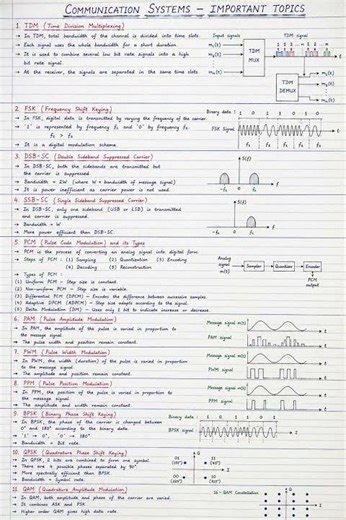 COMMUNICATION SYSTEMS – IMPORTANT TOPICS
1. TDM (Time Division Multiplexing)
→ In TDM, total bandwidth of the channel is divided into time slots.
→ Each signal uses the whole bandwidth for a short duration.
→ It is used to combine several low bit rate signals into a high
bit rate signal.
→ At the receiver, the signals are separated in the same time slots.
Input signals
m₁(t)
m₂(t)
m₃(t)
TDM
MUX
TDM signal
t
TDM
DEMUX
m₁(t)
m₂(t)
m₃(t)
2. FSK (Frequency Shift Keying)
→ In FSK, digital data is transmitted by varying the frequency of the carrier.
→ '1' is represented by frequency f₁ and '0' by frequency f₂.
f₁ > f₂
→ It is a digital modulation scheme.
Binary data : 1 0 1 1 0 1
FSK Signal
t
3. DSB-SC (Double Sideband Suppressed Carrier)
→ In DSB-SC, both the sidebands are transmitted but
the carrier is suppressed.
→ Bandwidth = 2W (where W = bandwidth of message signal)
→ It is power inefficient as carrier power is not used.
S(f)
-f₀ 0 f₀ f
4. SSB-SC (Single Sideband Suppressed Carrier)
→ In SSB-SC, only one sideband (USB or LSB) is transmitted
and carrier is suppressed.
→ Bandwidth = W
→ More power efficient than DSB-SC.
S(f)
0 f₀ f
5. PCM (Pulse Code Modulation) and its Types
→ PCM is the process of converting an analog signal into digital form.
→ Steps of PCM : (1) Sampling (2) Quantization (3) Encoding
(4) Decoding (5) Reconstruction
→ Types of PCM :
(1) Uniform PCM – Step size is constant.
(2) Non-uniform PCM – Step size is variable.
(3) Differential PCM (DPCM) – Encodes the difference between successive samples.
(4) Adaptive DPCM (ADPCM) – Step size adapts according to the signal.
(5) Delta Modulation (DM) – Uses only 1 bit to indicate increase or decrease.
Analog
signal
m(t)
Sampler
Quantizer
Encoder
PCM
output
6. PAM (Pulse Amplitude Modulation)
→ In PAM, the amplitude of the pulse is varied in proportion to
the message signal.
→ The pulse width and position remain constant.
Message signal m(t)
t
PAM signal
t
7. PWM (Pulse Width Modulation)
→ In PWM, the width (duration) of the pulse is varied in proportion
to the message signal.
→ The amplitude and position remain constant.
Message signal m(t)
t
PWM signal
t
8. PPM (Pulse Position Modulation)
→ In PPM, the position of the pulse is varied in proportion to
the message signal.
→ The amplitude and width remain constant.
Message signal m(t)
t
PPM signal
t
9. BPSK (Binary Phase Shift Keying)
→ In BPSK, the phase of the carrier is changed between
0° and 180° according to the binary data.
→ '1' → 0°, '0' → 180°
→ Bandwidth = Bit rate.
Binary data : 1 0 1 1 0 1
BPSK signal
t
10. QPSK (Quadrature Phase Shift Keying)
→ In QPSK, 2 bits are combined to form one symbol.
→ There are 4 possible phases separated by 90°.
→ More spectrally efficient than BPSK.
→ Bandwidth = Symbol rate.
Q
I
11. QAM (Quadrature Amplitude Modulation)
→ In QAM, both amplitude and phase of the carrier are varied.
→ It combines ASK and PSK.
→ Higher order QAM gives high data rate.
16 – QAM Constellation
Q
I